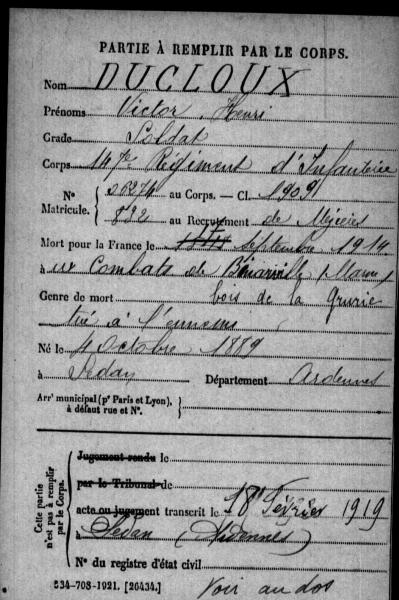 PARTIE À REMPLIR PAR LE CORPS.
Nom DUCLOUX
Prénoms Victor Henri
Grade Soldat
Corps 147e Régiment d'Infanterie
N° Matricule. { 06274 au Corps. — Cl. 1909
832 au Recrutement de Mézières
Mort pour la France le Septembre 1914
à ux Combats de Binarville (Marne)
Genre de mort bois de la Grurie
tué à l'ennemi
Né le 4 Octobre 1889
à Sedan Département Ardennes
Arr' municipal (p' Paris et Lyon), à défaut rue et N°. }
Cette partie n'est pas à remplir par le Corps.
Jugement rendu le
par le Tribunal de
acte ou jugement transcrit le 18 Février 1919
à Sedan (Ardennes)
N° du registre d'état civil
534-708-1921. [26434.] Voir au dos